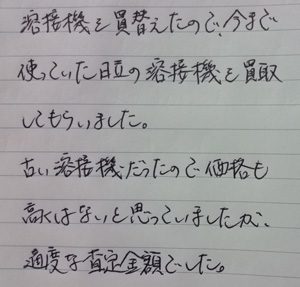 溶接機を買替えたので、今まで
使っていた日立の溶接機を買取
してもらいました。
古い溶接機だったので価格も
高くはないと思っていましたが、
適度な査定金額でした。